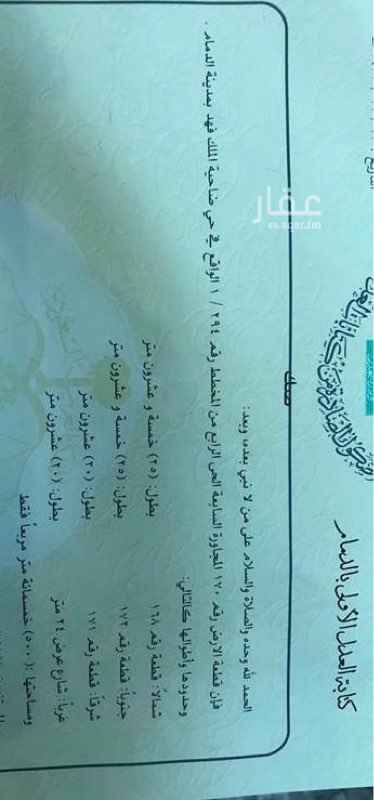 كتابة العدل الأولى بالدمام
التاريخ
صك
الحمد لله وحده والصلاة والسلام على من لا نبي بعده، وبعد:
فإن قطعة الارض رقم ١٧٠ المجاورة السابعة الحي الرابع من المخطط رقم ٢٩٤ / ١ الواقع في حي ضاحية الملك فهد بمدينة الدمام .
وحدودها وأطوالها كالتالي:
شمالا: قطعة رقم ١٦٨ بطول: (٢٥) خمسة و عشرون متر
جنوبا: قطعة رقم ١٧٢ بطول: (٢٥) خمسة و عشرون متر
شرقا: قطعة رقم ١٧١ بطول: (٢٠) عشرون متر
غربا: شارع عرض ٢٤ متر بطول: (٢٠) عشرون متر
ومساحتها :(٥٠٠) خمسمائة متر مربعاً فقط
عقار
sa.aqar.fm